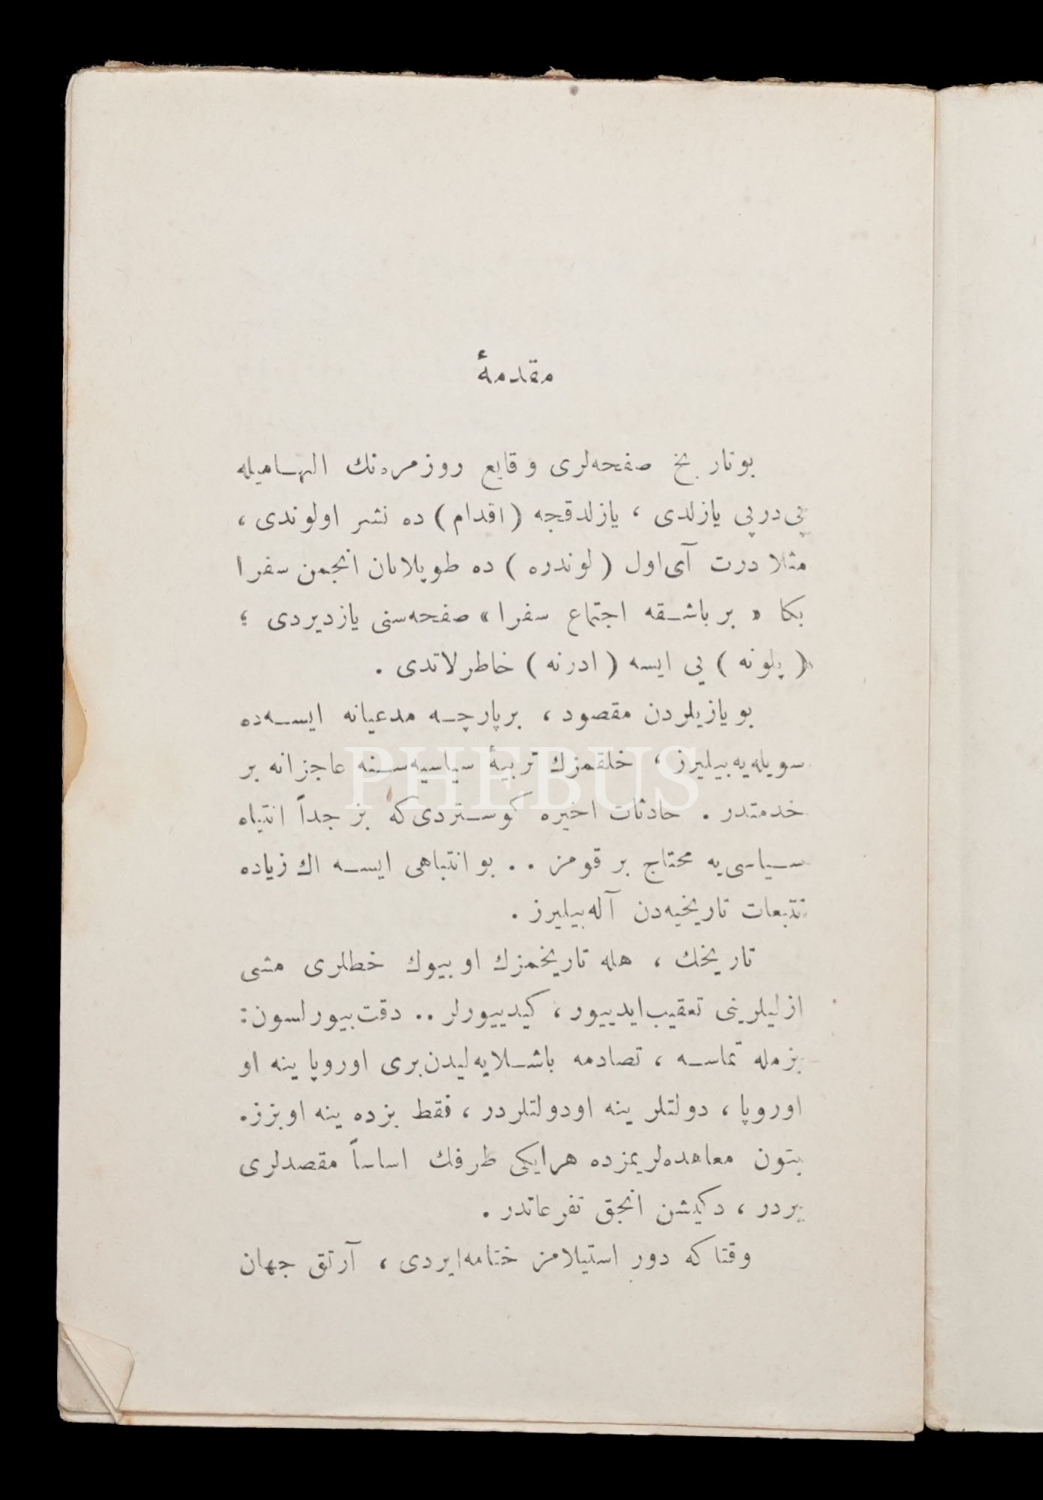 مقدمهٔ
بو تاریخ صفحه‌لری وقایع روزمره‌نك الهامیله
پی‌درپی یازلدی ، یازلدقجه (اقدام) ده نشر اولوندی ،
مثلا درت آی‌اول (لوندره) ده طوپلانان انجمن سفرا
بكا « بر باشقه اجتماع سفرا» صفحه‌سنی یازدیردی ؛
(پلونه) یی ایسه (ادرنه) خاطرلاتدی .
بو یازیلردن مقصود ، برپارچه مدعیانه ایسه‌ده
سویله‌یه‌بیلیرز ، خلقمزك تربیهٔ سیاسیه‌سنه عاجزانه بر
خدمتدر . حادثات اخیره كوستردی‌كه بز جداً انتباه
سیاسی‌یه محتاج بر قومز .. بو انتباهی ایسه اك زیاده
تتبعات تاریخیه‌دن آله‌بیلیرز .
تاریخك ، هله تاریخمزك او بیوك خطلری مشی
ازلیلرینی تعقیب‌ایدییور ، كیدییورلر .. دقت‌بیورلسون:
بزمله تماسه ، تصادمه باشلایه‌لیدن‌بری اوروپا ینه او
اوروپا ، دولتلر ینه اودولتلردر ، فقط بزده ینه اوبزز.
بتون معاهده‌لریمزده هرایكی طرفك اساساً مقصدلری
بردر ، دكیشن انجق تفرعاتدر .
وقتاكه دور استیلامز ختامه‌ایردی ، آرتق جهان
PHEBUS